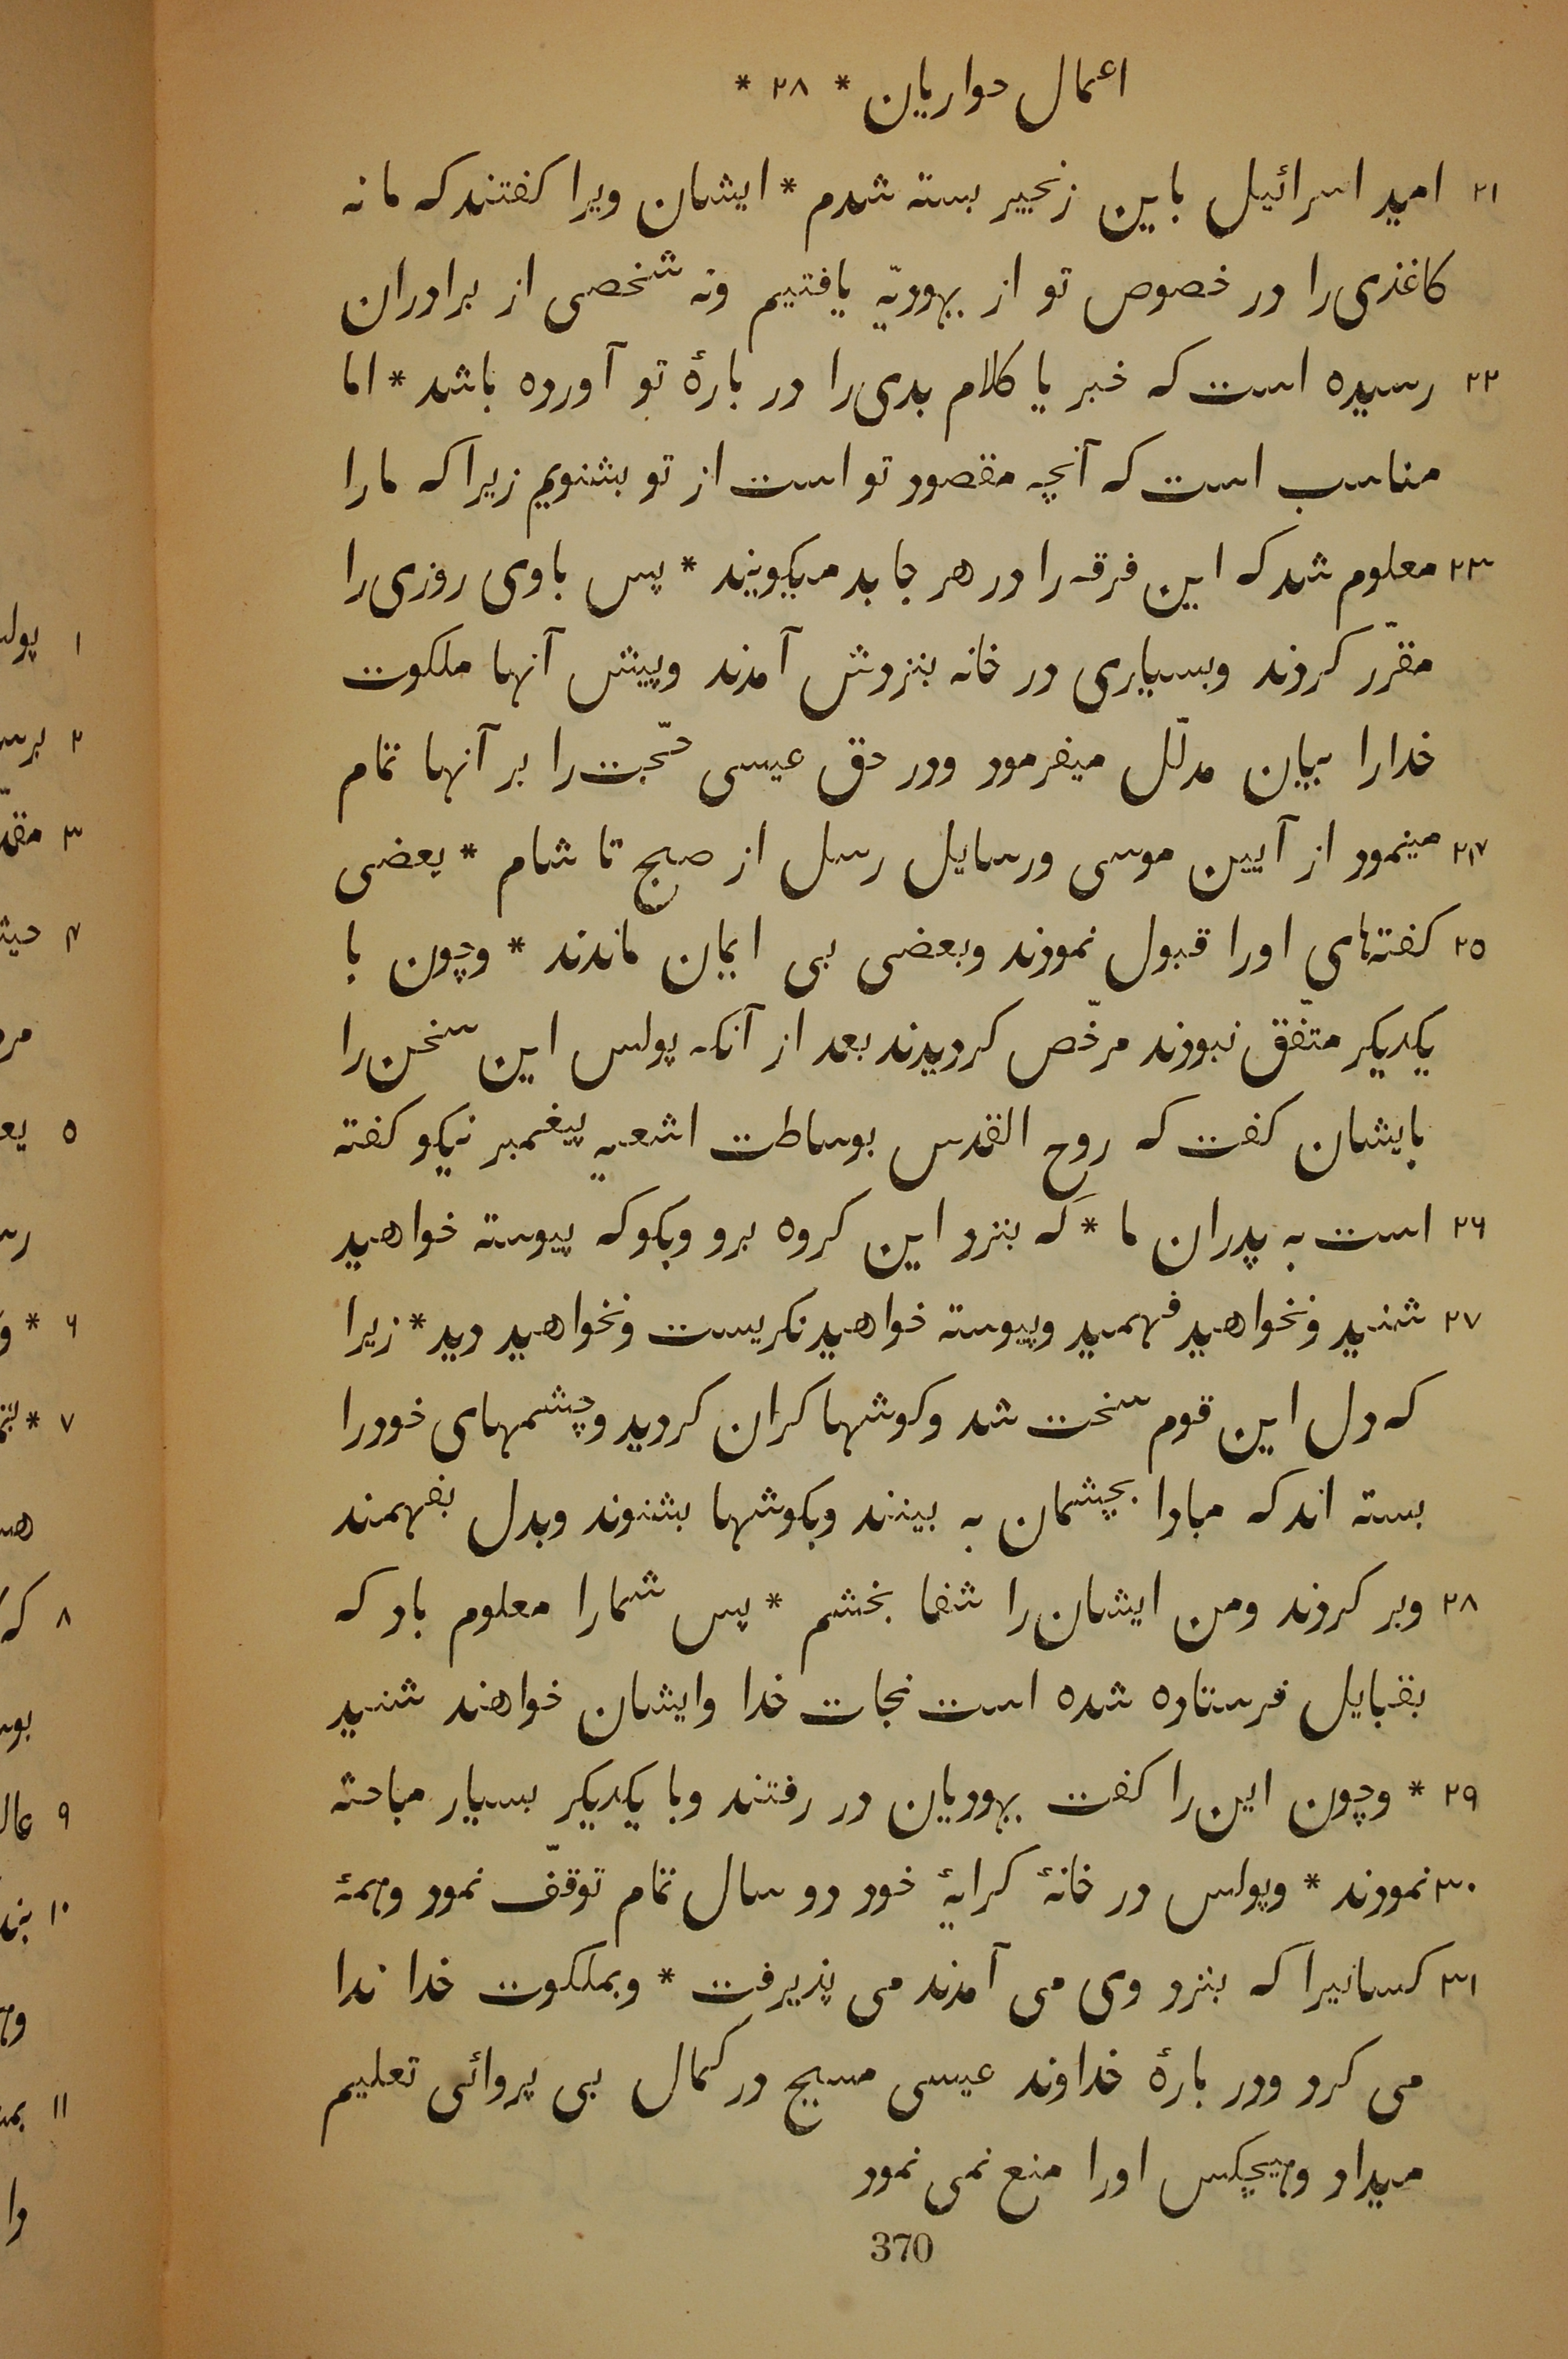 اعمال حواریان * ۲۸ *
۲۱ امید اسرائیل باین زنجیر بسته شدم * ایشان ویرا کفتند که ما نه
کاغذی را در خصوص تو از یهودیّه یافتیم ونه شخصی از برادران
۲۲ رسیده است که خبر یا کلام بدی را در بارهٔ تو آورده باشد * اما
مناسب است که آنچه مقصود تو است از تو بشنویم زیرا که ما را
۲۳ معلوم شد که این فرقه را در هر جا بد میکویند * پس با وی روزی را
مقرّر کردند وبسیاری در خانه بنزدش آمدند وپیش آنها ملکوت
خدارا بیان مدلّل میفرمود ودر حق عیسی حجّت را بر آنها تمام
۲۴ مینمود از آیین موسی ورسایل رسل از صبح تا شام * بعضی
۲۵ کفتهای اورا قبول نمودند وبعضی بی ایمان ماندند * وچون با
یکدیکر متّفق نبودند مرخّص کردیدند بعد از آنکه پولس این سخن را
بایشان کفت که روح القدس بوساطت اشعیه پیغمبر نیکو کفته
۲۶ است به پدران ما * که بنزد این کروه برو وبکو که پیوسته خواهید
۲۷ شنید ونخواهید فهمید وپیوسته خواهید نکریست ونخواهید دید * زیرا
که دل این قوم سخت شد وکوشها کران کردید وچشمهای خودرا
بسته اند که مبادا بچشمان به بینند وبکوشها بشنوند وبدل بفهمند
۲۸ وبر کردند ومن ایشان را شفا بخشم * پس شمارا معلوم باد که
بقبایل فرستاده شده است نجات خدا وایشان خواهند شنید
۲۹ * وچون این را کفت یهودیان در رفتند وبا یکدیکر بسیار مباحثه
۳۰ نمودند * وپولس در خانهٔ کرایهٔ خود دو سال تمام توقّف نمود وهمهٔ
۳۱ کسانیرا که بنزد وی می آمدند می پذیرفت * وبملکوت خدا ندا
می کرد ودر بارهٔ خداوند عیسی مسیح در کمال بی پروائی تعلیم
میداد وهیچکس اورا منع نمی نمود
370